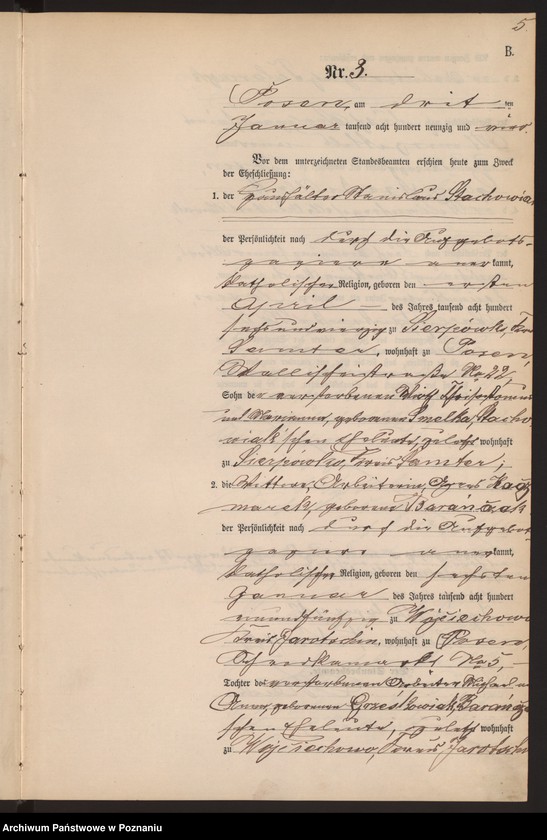 5.
B.
Nr. 3.
Posen, am drit ten
Januar tausend acht hundert neunzig und vier.
Vor dem unterzeichneten Standesbeamten erschien heute zum Zweck
der Eheschließung:
1. der Haushälter Stanislaus Stachowia
der Persönlichkeit nach durch die Aufgebots-
papiere anerkannt,
katholischer Religion, geboren den ersten
April des Jahres tausend acht hundert
sechsundvierzig zu Sierpówko, Kreis
Samter, wohnhaft zu Posen,
Wallischeistraße No 22,
Sohn der verstorbenen Wirth
und Marianna, geborenen Smelka, Stacho
wiak'schen Eheleute, zuletzt wohnhaft
zu Sierpówko, Kreis Samter;
2. die Wittwe, Arbeiterin, Agnes Kacz
marek, geborene Barańczak
der Persönlichkeit nach durch die Aufgebots
papiere anerkannt,
katholischer Religion, geboren den sechsten
Januar des Jahres tausend acht hundert
neunundfünfzig zu Wojciechowo
Kreis Jarotschin, wohnhaft zu Posen,
Schrodkamarkt No 5,
Tochter der verstorbenen Arbeiter Michael u
Anna, geborenen Grześkowiak, Barańcza
schen Eheleute, zuletzt wohnhaft
zu Wojciechowo, Kreis Jarotschi
Archiwum Państwowe w Poznaniu